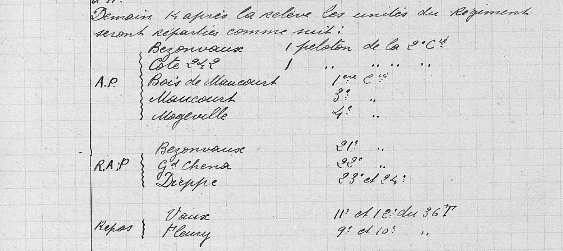 Demain 14 après la relève les unités du Régiment
seront réparties comme suit :
Bezonvaux 1 peloton de la 2e Cie
Cote 242 1 " " " "
A.P. Bois de Maucourt 1ere Cie
Maucourt 3e "
Mogeville 4e "
Bezonvaux 21e "
R.A.P Gd Chena 22e "
Dieppe 23e et 24e
Vaux 11e et 12e du 36T
Repos Fleury 9e et 10e "